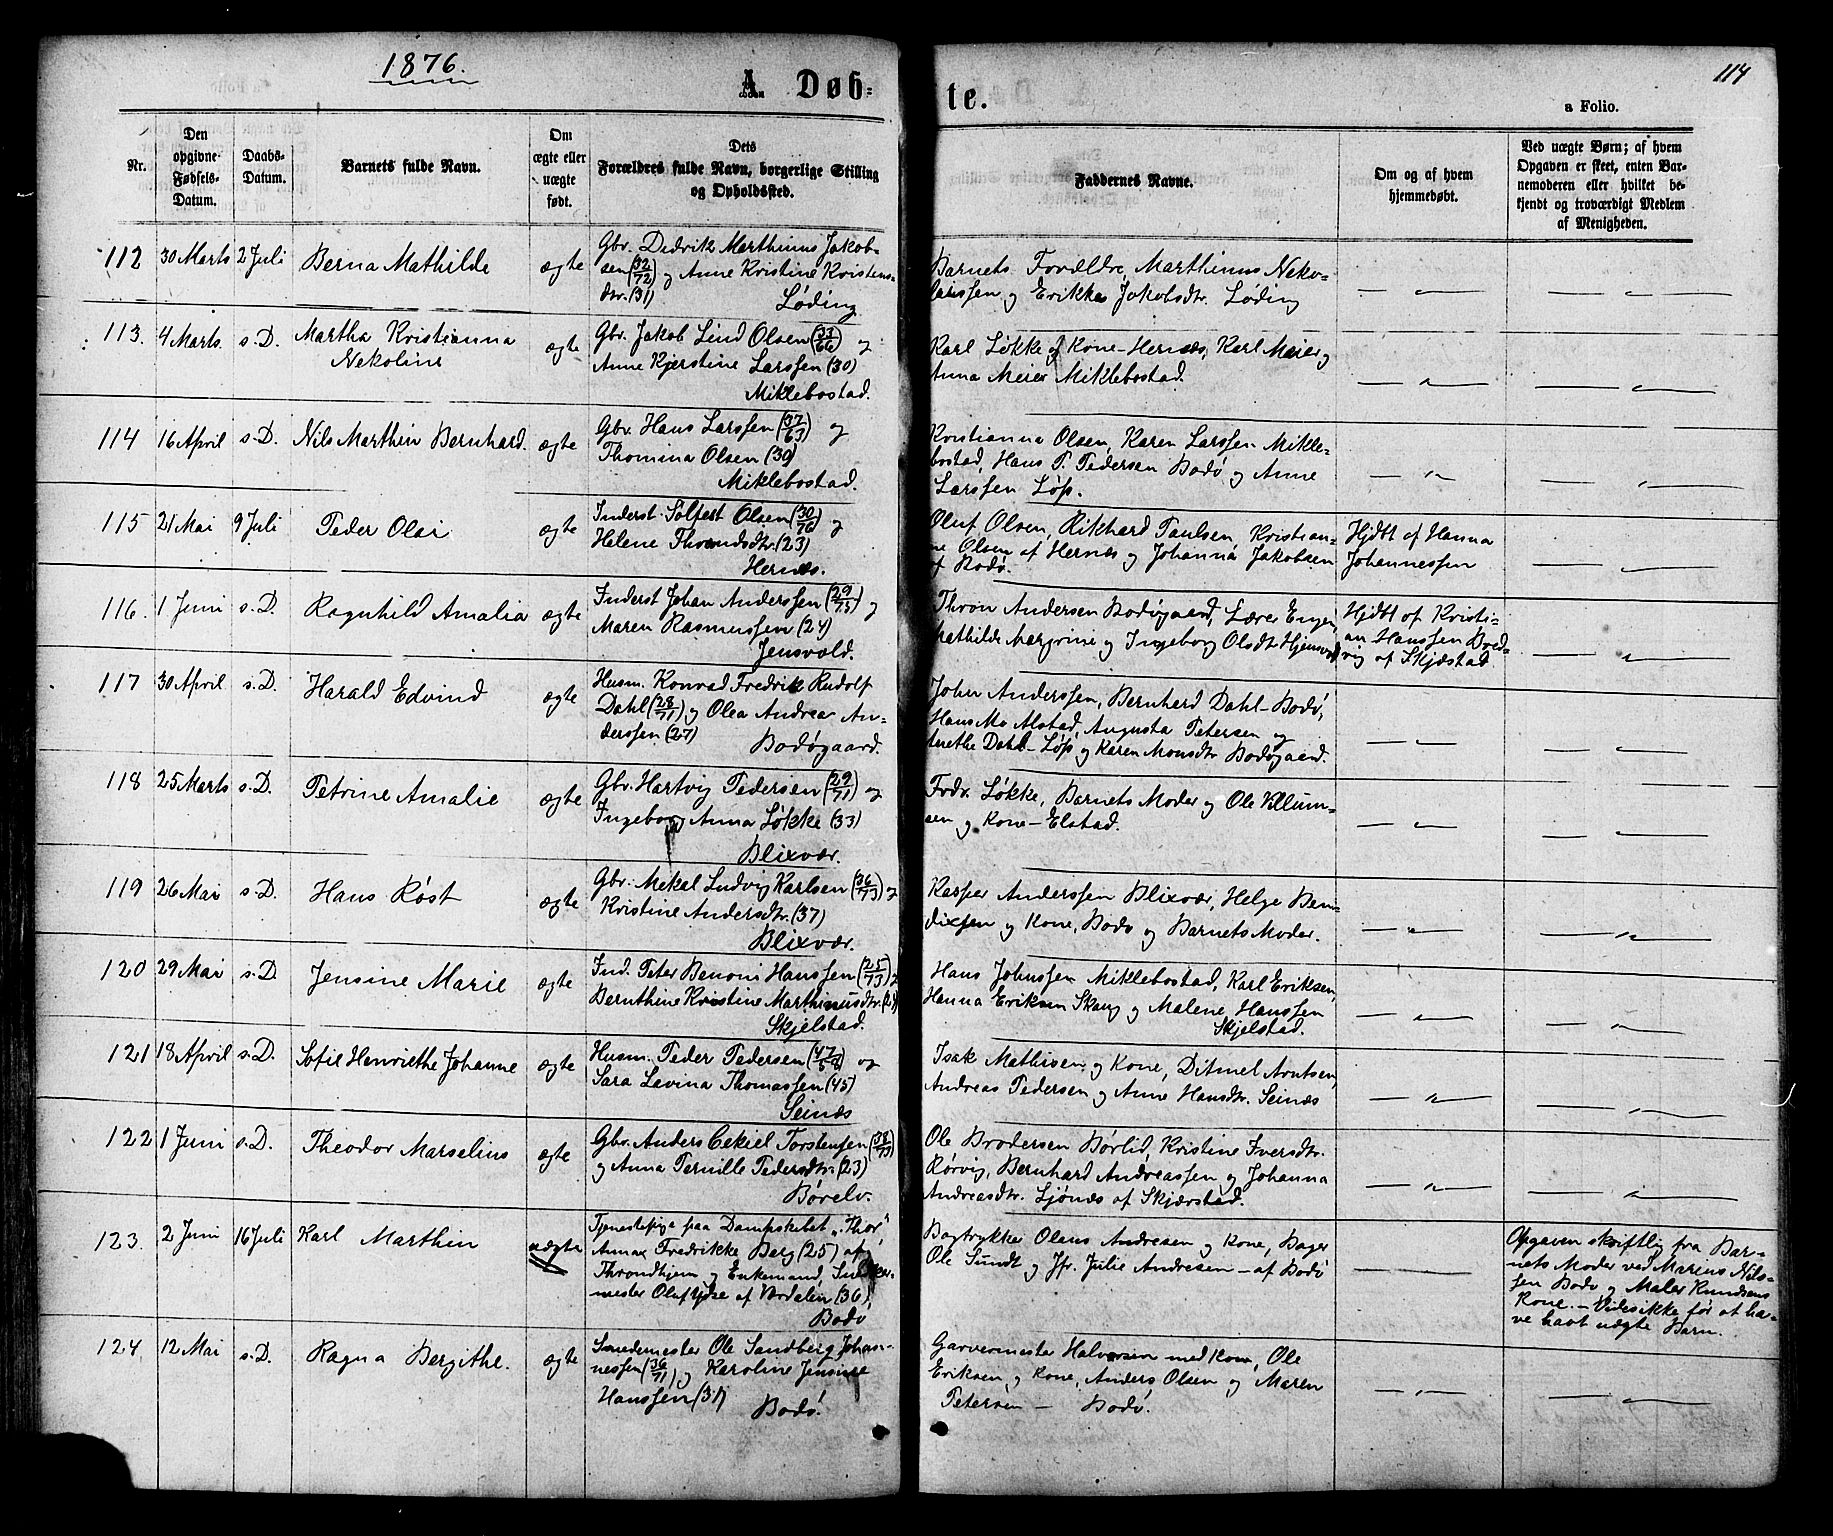 1876.
114
A. Døb-
te.
a Folio.
Nr.
Den
opgivne
Fødsels-
Datum.
Daabs-
Datum.
Barnets fulde Navn.
Om
ægte eller
uægte
født.
Dets
Forældres fulde Navn, borgerlige Stilling
og Opholdssted.
Faddernes Navne.
Om og af hvem
hjemmedøbt.
Ved uægte Børn; af hvem
Opgaven er skeet, enten Bar-
nemoderen eller hvilket be-
kjendt og troværdigt Medlem
af Menigheden.
112 30 Marts 2 Juli Berna Mathilde ægte
Gbr. Dedrik Marthinus Jakob-
sen (32/72) og Anne Kristine Kristens-
dtr. (31)
Løding
Barnets Forældre, Marthinus Neko-
laissen og Erikka Jakobsdtr. Løding
— " — — " —
113. 4 Marts. s. D. Martha Kristianna
Nekoline
ægte
Gbr. Jakob Lind Olsen (33/66) og
Anne Kjerstine Larssen (30)
Miklebostad.
Karl Løkke og Kone - Hernæs, Karl Meier og
Anna Meier Miklebostad.
— " — — " —
114 16 April s. D. Nils Marthin Bernhard. ægte
Gbr. Hans Larssen (37/63) og
Thomina Olsen (30)
Miklebostad.
Kristianna Olsen, Karen Larssen Mikle-
bostad, Hans P. Pedersen Bodø og Anne
Larssen Løp.
— " — — " —
115 21 Mai 9 Juli Peder Olai ægte
Inderst Sølfest Olsen (30/76) og
Helene Throndsdtr. (23)
Hernæs.
Oluf Olsen, Rikhard Paulsen, Kristian-
ne Olsen af Hernæs og Johanna Jakobsen
af Bodø.
Hjdbt af Hanna
Johannessen
— " —
116. 1 Juni s. D. Ragnhild Amalia ægte
Inderst Johan Anderssen (29/75) og
Maren Rasmussen (24)
Jensvold.
Thron Andersen Bodøgaard, Lærer Engen,
Mathilde Margrine og Ingeborg Olsdt Hjensvold
Hjdbt af Kristi-
an Hanssen Bred-
vig af Skjæstad
— " —
117 30 April s. D. Harald Edvind ægte
Husm. Konrad Fredrik Rudolf
Dahl (28/71) og Olea Andrea An-
derssen (27) Bodøgaard.
Johan Anderssen, Bernhard Dahl - Bodø,
Hans Mo Alstad, Augusta Petersen og
Anethe Dahl - Løp og Karen Monsdtr Bodøgaard.
— " — — " —
118 25 Marts s. D. Petrine Amalie ægte
Gbr. Hartvig Pedersen (29/71) og
Ingeborg Anna Løkke (33)
Blixvær.
Fredr. Løkke, Barnets Moder og Ole Villum-
sen og Kone - Elstad.
— " — — " —
119 26 Mai s. D. Hans Røst ægte
Gbr. Mekal Ludvig Karlsen (36/73) og
Kristine Andersdtr. (37)
Blixvær.
Kasper Anderssen Blixvær, Helge Ben-
dixsen og Kone, Bodø og Barnets Moder.
— " — — " —
120 29 Mai s. D Jensine Marie ægte
Ind. Peter Benoni Hanssen (25/73) og
Bernthine Kristine Marthinusdtr.
Skjelstad.
Hans Johnssen Miklebostad, Karl Eriksen,
Hanna Eriksen Skaug og Malene Hanssen
Skjelstad.
— " — — " —
121 18 April s. D. Sofie Henriethe Johanne ægte
Husm. Peder Pedersen (47/58) og
Sara Levina Thomassen (45)
Seinæs
Isak Mathisen og Kone, Ditmel Arntsen,
Andreas Pedersen og Anne Hansdtr. Seinæs
— " — — " —
122 1 Juni s. D. Theodor Marselius ægte
Gbr. Anders Cekiel Torstensen (38/73)
og Anna Pernille Pedersdtr. (23)
Børelv.
Ole Brodersen Børlid, Kristine Iversdtr.
Rørvig, Bernhard Andreassen og Johanna
Andreasdtr. Ljønæs af Skjærstad.
— " — — " —
123. 2 Juni 16 Juli Karl Marthin uægte
Tjenestepige paa Dampskibet "Thor",
Anna Fredrikke Berg (25) af
Throndhjem og Enkemand,
mester Oluf af Værdalen (36)
Bodø
Bogtrykker Olaus Andresen og Kone, Bager
Ole Sundt og Jfr. Julie Andresen - af Bodø
—
Opgaven skriftlig fra Bar-
nets Moder ved Marius Nils-
sen Bodø og Maler Knudsens
Kone. - Vides ikke før at ha-
ve havt uægte Barn.
124. 12 Mai s. D. Ragna Bergithe. ægte
Smedemester Ole Sandberg Johan-
nessen (36/71) og Karoline Jensine
Hanssen (31) Bodø.
Garvermester Halvorsen med Kone, Ole
Eriksen og Kone, Anders Olsen og Maren
Petersen — Bodø.
— " — — " —